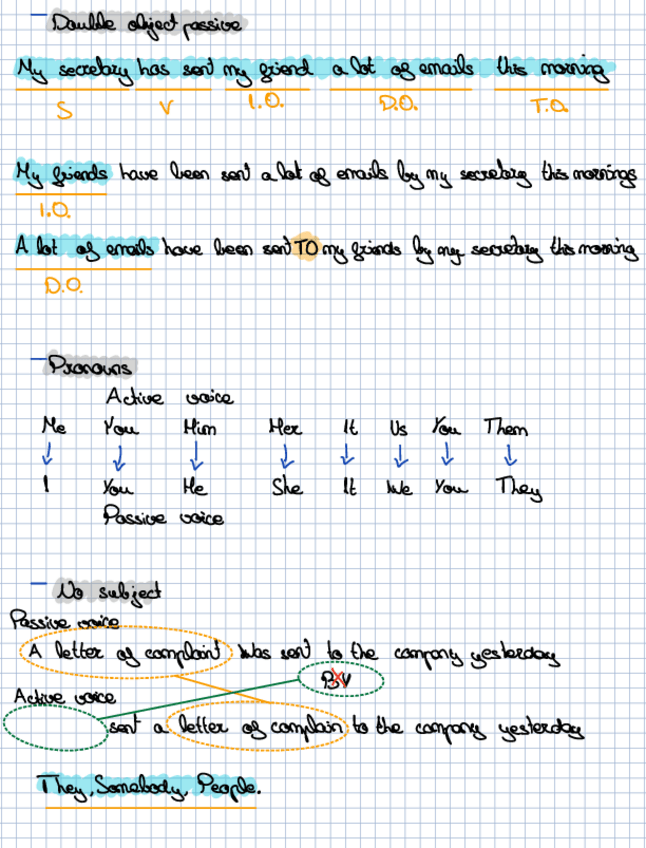 Double object passive
My secretary has sent my friend a lot of emails this morning
S V I.O. D.O. T.O.
My friends have been sent a lot of emails by my secretary this mornings
I.O.
A lot of emails have been sent TO my friends by my secretary this morning
D.O.
Pronouns
Active voice
Me You Him Her It Us You Them
I You He She It We You They
Passive voice
No subject
Passive voice
A letter of complaint was sent to the company yesterday
BY
Active voice
sent a letter of complain to the company yesterday
They, Somebody, People.